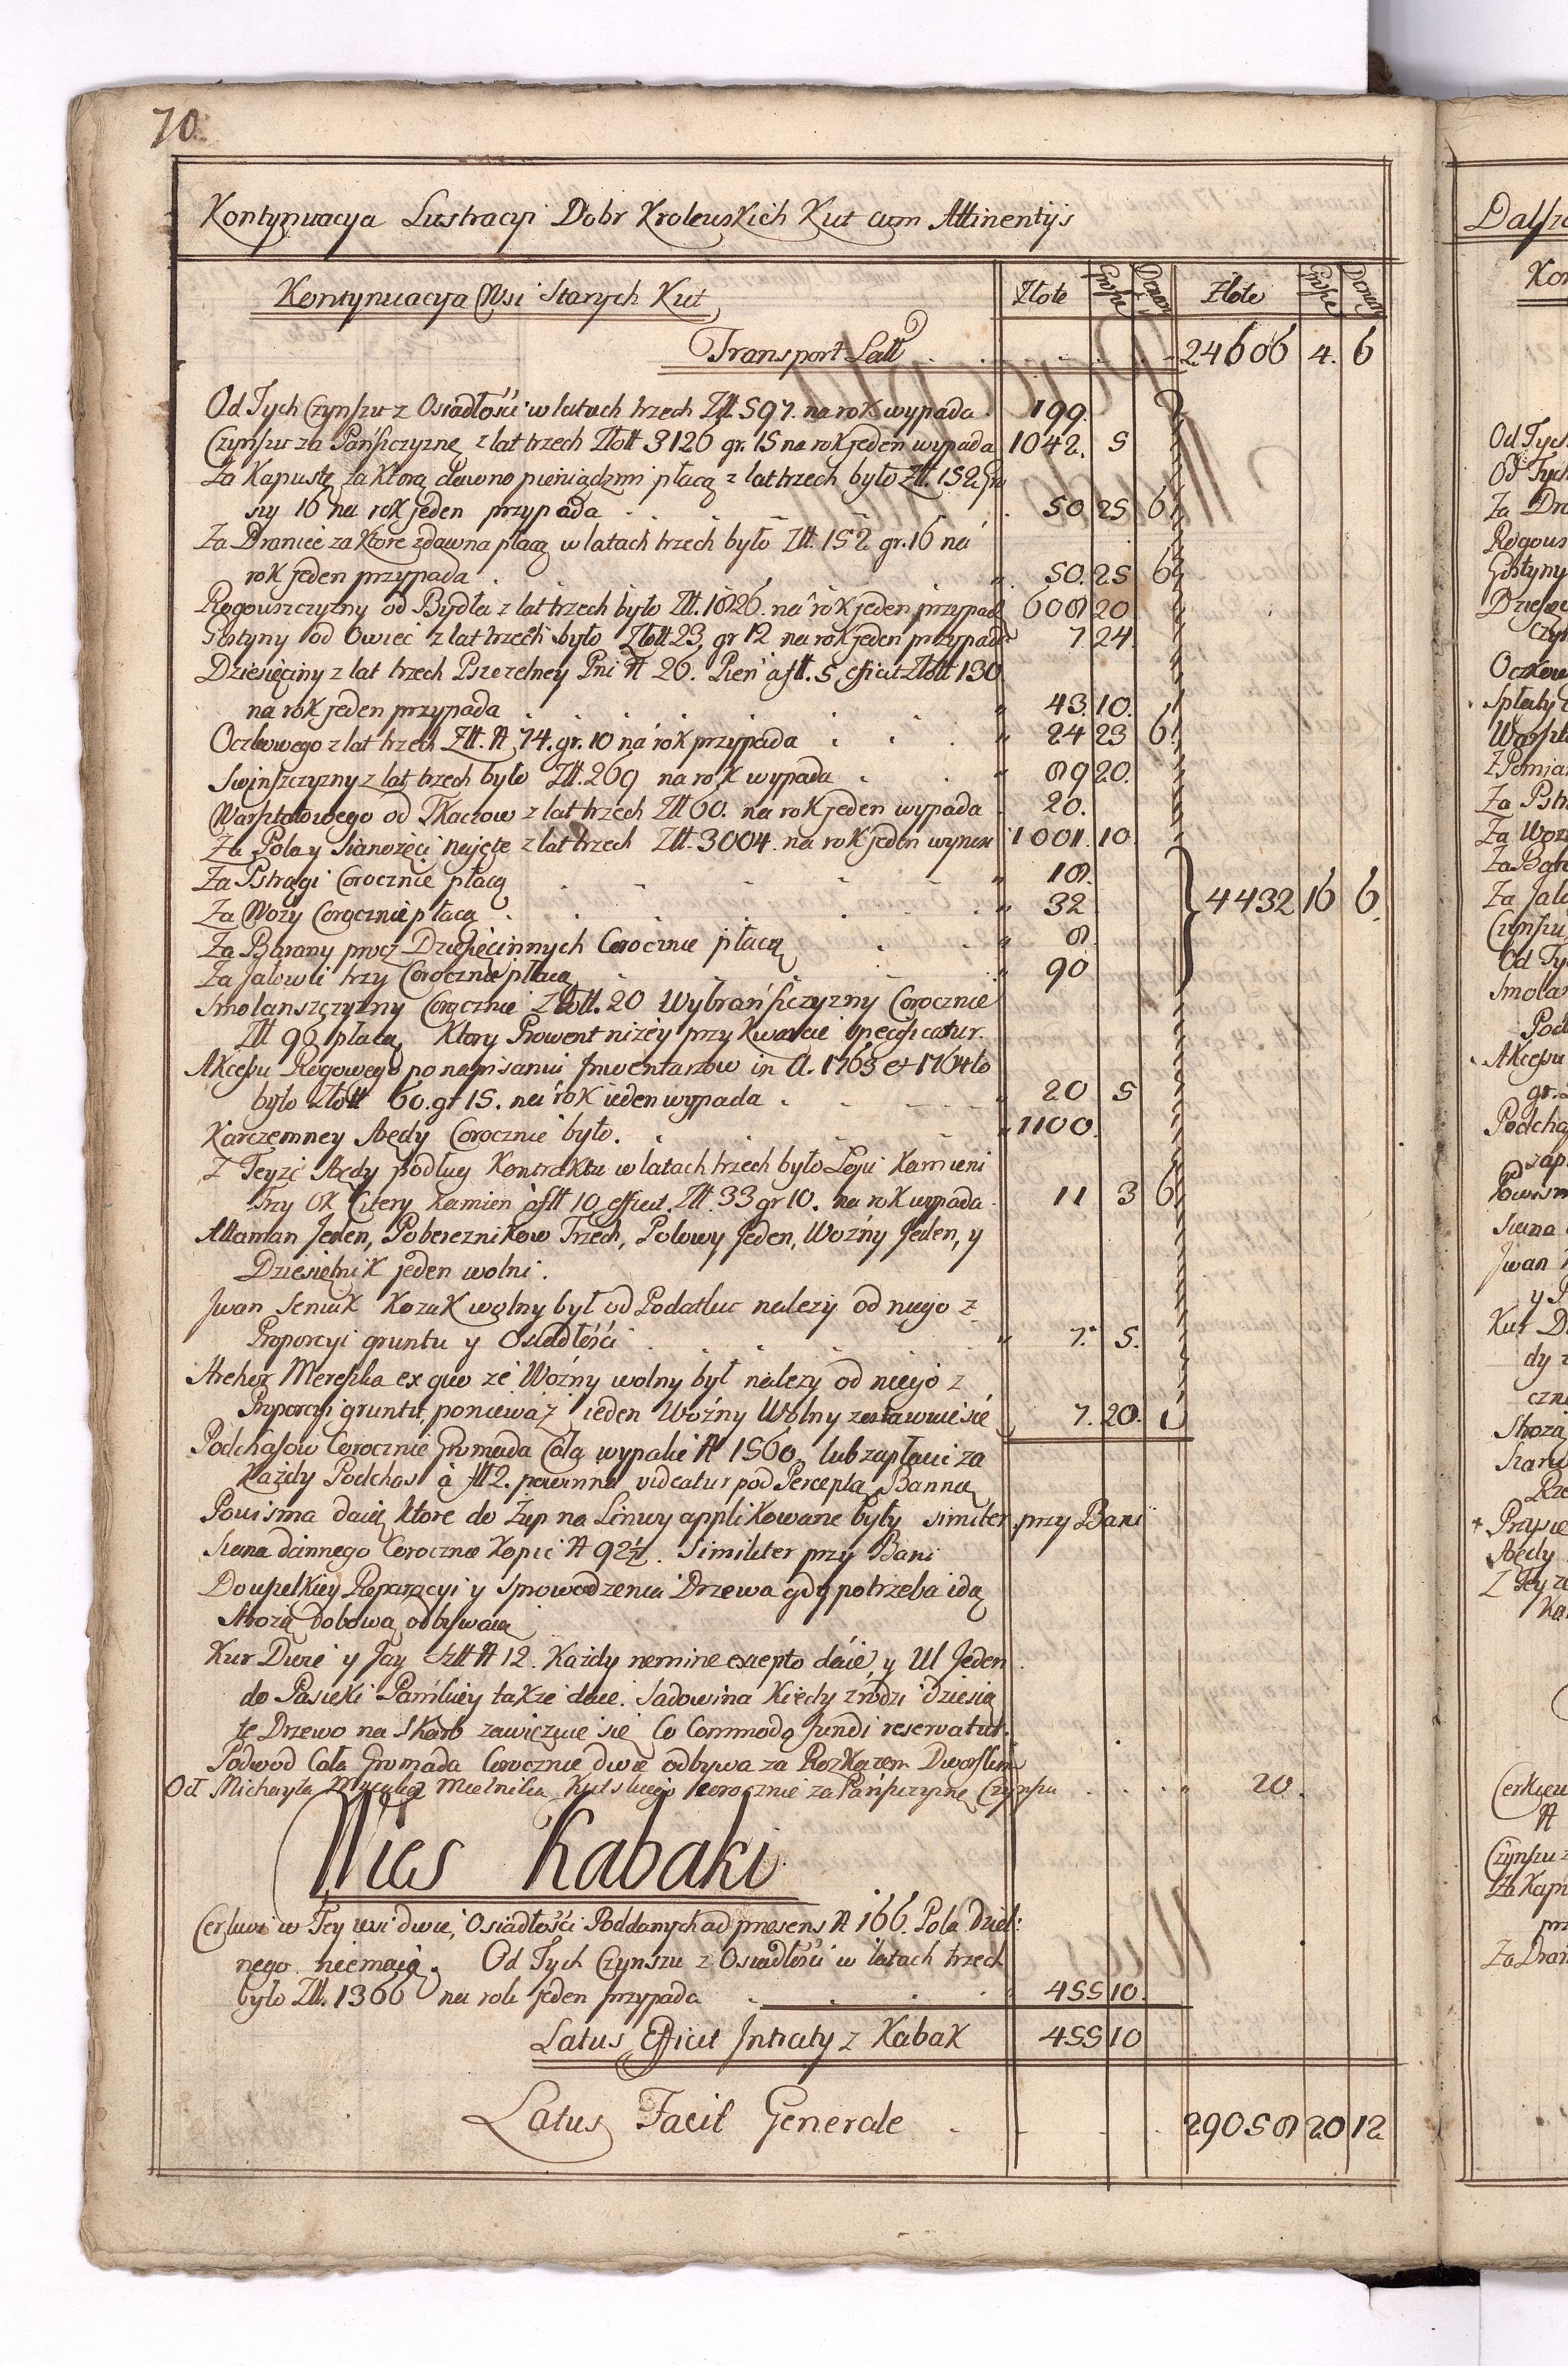 70.
Kontynuacya Lustracyi Dobr Krolewskich Kut cum Attinentijs
Kontynuacya Wsi Starych Kut Złote Grosze Denar Złote Grosze Denar
Transport Latt 24606 4. 6
Od Tych Czynszu z Osiadłości w latach trzech Złt. 597. na rok wypada 199.
Czynszu za Pańszczyznę z lat trzech Złott 3126 gr. 15 na rok jeden wypada 1042. 5
Za Kapustę za ktorą dawno pieniądzmi płacą z lat trzech było Złt. 152 gro
szy 16 na rok jeden przypada 50 25 6
Za Dranice za ktore zdawna płacą w latach trzech było Złt. 152 gr. 16 na
rok jeden przypada 50. 25 6
Rogowszczyzny od Bydła z lat trzech było Złt. 1826. na rok jeden przypad 608 20
Gostyny od Owiec z lat trzech było Złott 23, gr 12 na rok jeden przypada 7. 24.
Dziesięciny z lat trzech Pszczelney Pni N 26. Pień a flt. 5, efficit Złott 130
na rok jeden przypada 43. 10.
Oczkowego z lat trzech Złt. N 74. gr. 10 na rok przypada 24 23 6
Swinszczyzny z lat trzech było Złt. 269 na rok wypada 89 20.
Warsztatowego od Tkaczow z lat trzech Złt 60. na rok jeden wypada 20.
Za Pola y Sianożęci najęte z lat trzech Złt. 3004. na rok jeden wynosi 1001. 10.
Za Pstrągi Corocznie płacą 18.
Za Wozy Corocznie płacą 32. 4432 16 6.
Za Barany procz Dziesięcinnych Corocznie płacą 8.
Za Jałowic trzy Corocznie płacą 90
Smolanszczyzny Corocznie Złott. 20 Wybrańszczyzny Corocznie
Złt 90 płacą, Ktory Prowent niżey przy Kwarcie specificatur.
Akcessu Rogowego po napisaniu Inwentarzow in A. 1763 et 1764to
było Złott 60. gr 15. na rok ieden wypada 20 5
Karczemney Arędy Corocznie było. 1100.
Z Teyże Arędy podług Kontraktu w latach trzech było Łoju Kamieni
Trzy Ok Cztery Kamień a flt 10 efficit. Złt. 33 gr 10. na rok wypada 11 3 6
Attaman Jeden, Pobereznikow Trzech, Polowy Jeden, Woźny Jeden, y
Dziesiętnik jeden wolni.
Jwan Seniuk Kozak wolny był od Podatku należy od niego z
Proporcyi gruntu y Osiadłości 7. 5.
Mereszka ex quo że Woźny wolny był należy od niego z
Proporcyi gruntu, ponieważ ieden Woźny Wolny zostawuie się 7. 20.
Podchasow Corocznie Gromada Cała wypalić N 1560, lub zapłacić za
Każdy Podchas a flt 2. powinna videatur pod Perceptą Banną
Powisma daią które do Żup na Linwy applikowane były similiter przy Bani
Siana dannego Corocznie Kopic N 92½. Similiter przy Bani
Do wszelkiey Reparacyi y Sprowadzenia Drzewa gdy potrzeba idą
Strożą dobową odbywaią
Kur Dwie y Jay N 12. Każdy nemine excepto daie, y Ul Jeden
do Pasieki Pańskiey także daie. Sadowina Kiedy zrodzi dziesią
te Drzewo na Skarb zawięzuie się Co Commodo fundi reservatur.
Podwod Cała Gromada Corocznie dwie odbywa za Rozkazem Dworskim
Od Michayła Mielnika Kutskiego corocznie za Pańszczyznę Czynszu 20.
Wies Kabaki
Cerkwi w Tey wsi dwie, Osiadłości Poddanych ad praesens N 166. Pola Dziel:
nego niemaią. Od Tych Czynszu z Osiadłości w latach trzech
było Złt. 1366 na rok jeden przypada 455 10.
Latus Efficit Intraty z Kabak 455 10
Latus Facit Generale 29058 20 12